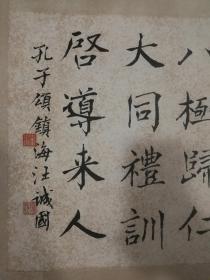 八極歸仁
大同禮訓
啓導来人
孔子頌鎮海汪誠國